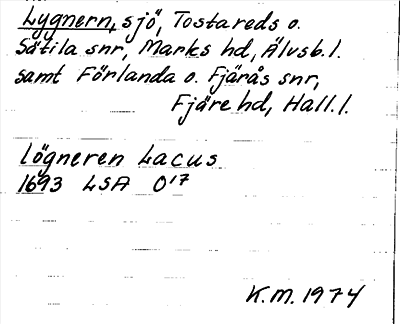 Lygnern, sjö, Tostareds o.
Sätila snr, Marks hd, Älvsb. l.
samt Förlanda o. Fjärås snr,
Fjäre hd, Hall. l.
Lögneren Lacus
1693 LSA O17
K.M. 1974